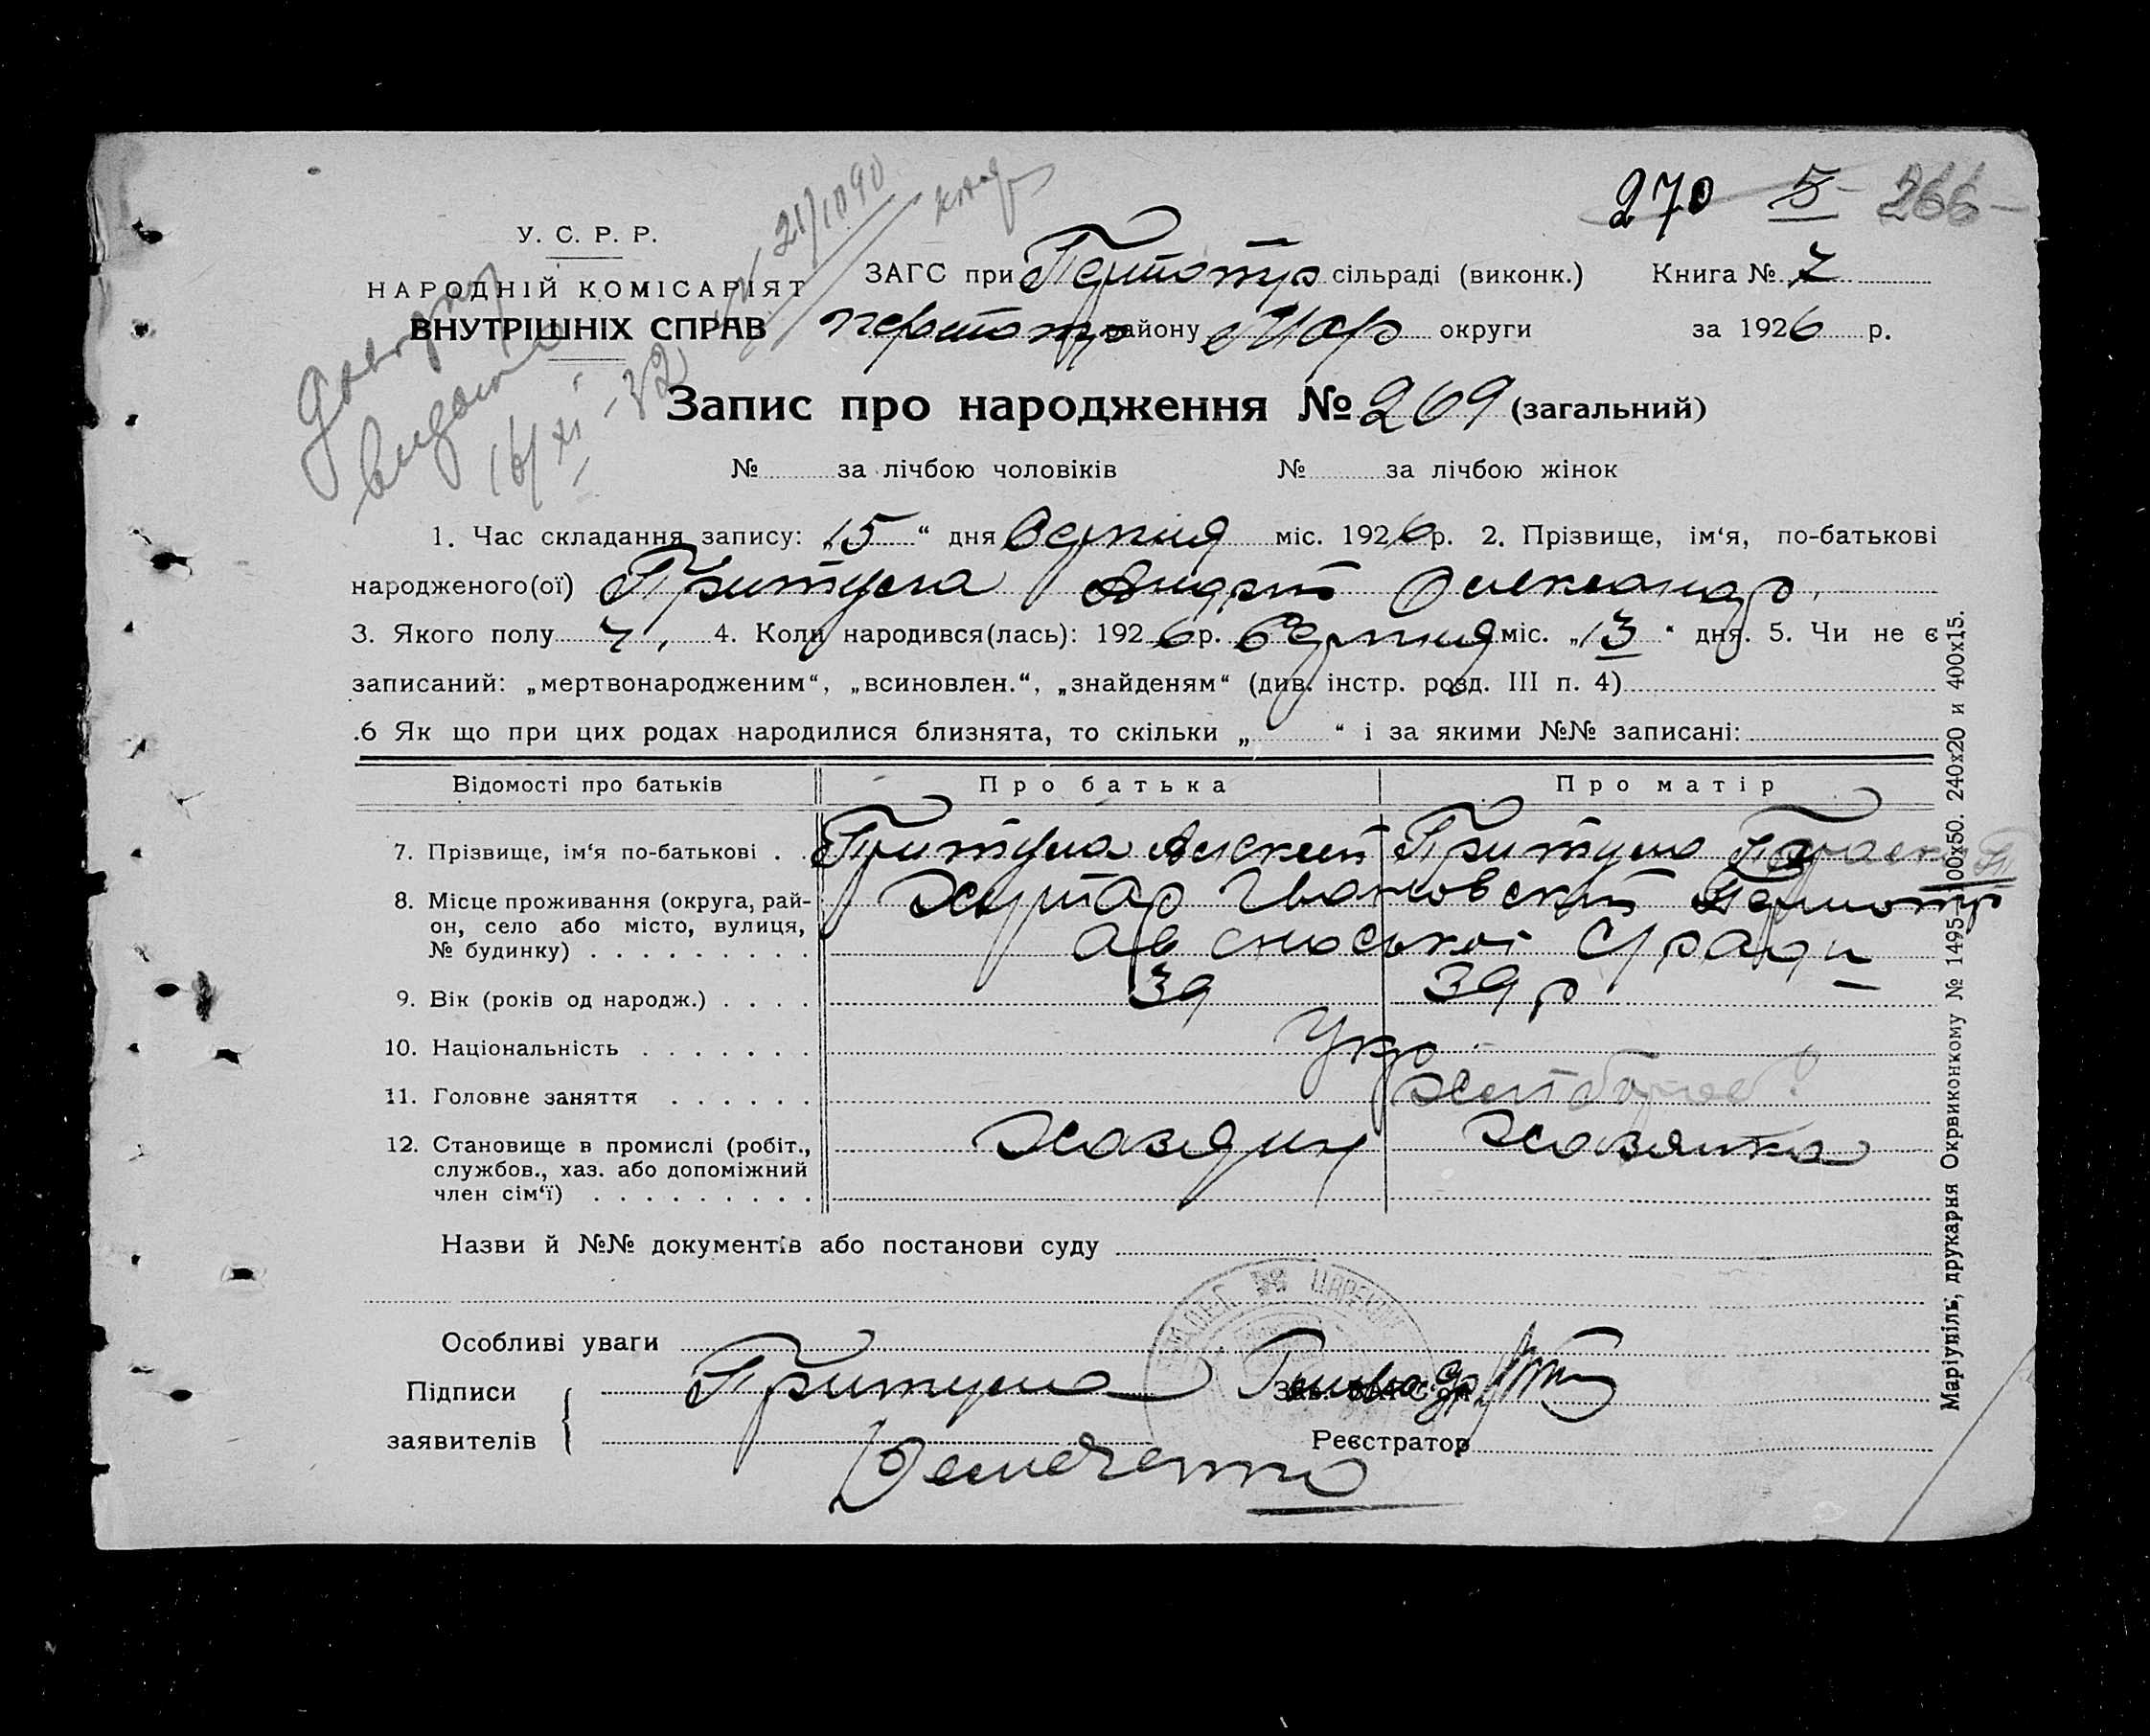 270 5 266
У. С. Р. Р.
НАРОДНІЙ КОМІСАРІЯТ
ВНУТРІШНІХ СПРАВ
16/XI - 32
ЗАГС при сільраді (виконк.) Книга № 7
району Мар округи за 1926 р.
Запис про народження № 269 (загальний)
№ за лічбою чоловіків № за лічбою жінок
1. Час складання запису: „15“ дня Серпня міс. 1926 р. 2. Прізвище, ім‘я, по-батькові
народженого(ої) Притула Андрій Олександр.
3. Якого полу ч. 4. Коли народився(лась): 1926 р. Серпня міс. „13“ дня. 5. Чи не є
записаний: „мертвонародженим“, „всиновлен.“, „знайденям“ (див. інстр. розд. III п. 4)
.6 Як що при цих родах народилися близнята, то скільки „ “ і за якими №№ записані:
Відомості про батьків Про батька Про матір
7. Прізвище, ім‘я по-батькові . . Притула Притула
8. Місце проживання (округа, рай-
он, село або місто, вулиця,
№ будинку) . . . . . . . . . Хутар Івановский
9. Вік (років од народж.) . . . . 39 39 р
10. Національність . . . . . . . Укр
11. Головне заняття . . . . . . Хлібороб
12. Становище в промислі (робіт.,
службов., хаз. або допоміжний
член сім‘ї) . . . . . . . . . . Хазяин Хозяйка
Назви й №№ документів або постанови суду
Особливі уваги
Підписи
заявителів
Притула
Демченко
Реєстратор
Маріупіль, друкарня Окрвиконкому № 1495—100х50. 240х20 и 400х15.